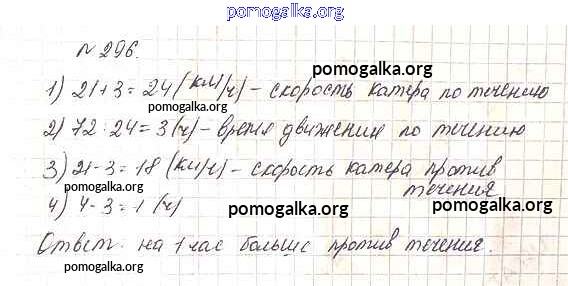 pomogalka.org
№ 296.
pomogalka.org
1) 21+3=24 (км/ч) - скорость катера по течению
pomogalka.org
2) 72:24=3 (ч) - время движения по течению
pomogalka.org
3) 21-3=18 (км/ч) - скорость катера против
течения
pomogalka.org
4) 4-3=1 (ч)
pomogalka.org
pomogalka.org
Ответ. на 1 час больше против течения.
pomogalka.org